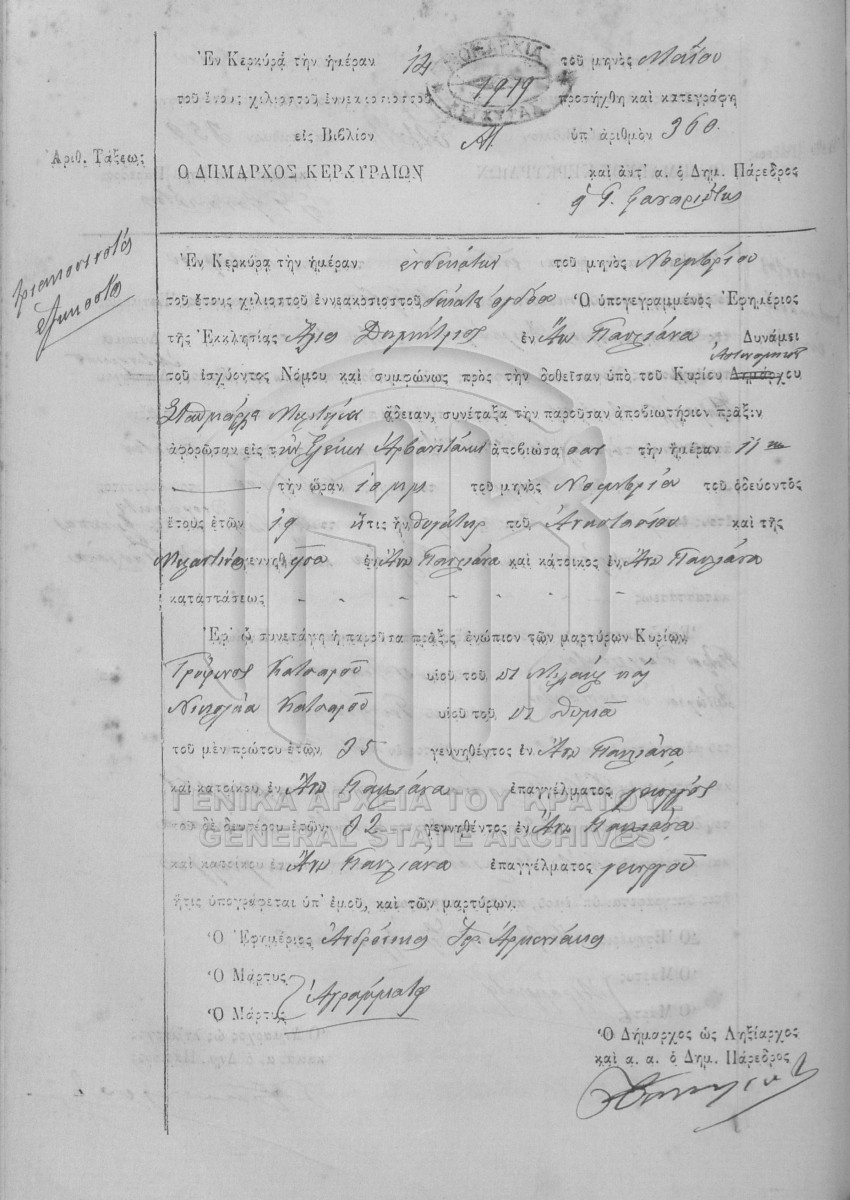 Ἐν Κερκύρᾳ τὴν ἡμέραν 12 τοῦ μηνὸς Μαΐου
τοῦ ἔτους χιλιοστοῦ ἐννεακοσιοστοῦ 1919 προσήχθη καὶ κατεγράφη
εἰς Βιβλίον Α/. ὑπ' ἀριθμὸν 360.
Ἀριθ. Τάξεως
Ο ΔΗΜΑΡΧΟΣ ΚΕΡΚΥΡΑΙΩΝ καὶ ἀντ' α. ὁ Δημ. Πάρεδρος
τριακοσιοστὸς
ἑξηκοστὸς
Ἐν Κερκύρᾳ τὴν ἡμέραν ἑνδεκάτην τοῦ μηνὸς Νοεμβρίου
τοῦ ἔτους χιλιοστοῦ ἐννεακοσιοστοῦ δεκάτου ὀγδόου Ὁ ὑπογεγραμμένος Ἐφημέριος
τῆς Ἐκκλησίας Ἅγιος Δημήτριος ἐν Ἄνω Παυλιάνα Δυνάμει
Ἀστυνομικοῦ
τοῦ ἰσχύοντος Νόμου καὶ συμφώνως πρὸς τὴν δοθεῖσαν ὑπὸ τοῦ Κυρίου Δημάρχου
Σταθμάρχη ἄδειαν, συνέταξα τὴν παροῦσαν ἀποβιωτήριον πρᾶξιν
ἀφορῶσαν εἰς τὴν Ἑλένην Ἀρβανιτάκη ἀποβιώσασαν τὴν ἡμέραν 11ην
τὴν ὥραν 10 μμ τοῦ μηνὸς Νοεμβρίου τοῦ ὁδεύοντος
ἔτους ἐτῶν 19 ἥτις ἦν θυγάτηρ τοῦ Ἀναστασίου καὶ τῆς
γεννηθεῖσα ἐν Ἄνω Παυλιάνα καὶ κάτοικος ἐν Ἄνω Παυλιάνα
καταστάσεως
Ἐφ' ᾧ συνετάγη ἡ παροῦσα πρᾶξις ἐνώπιον τῶν μαρτύρων Κυρίων
Τρύφωνος Κατσαροῦ υἱοῦ τοῦ Μιχαὴλ καὶ
Νικολάου Κατσαροῦ υἱοῦ τοῦ Θωμᾶ
τοῦ μὲν πρώτου ἐτῶν 35 γεννηθέντος ἐν Ἄνω Παυλιάνα
καὶ κατοίκου ἐν Ἄνω Παυλιάνα ἐπαγγέλματος γεωργὸς
τοῦ δὲ δευτέρου ἐτῶν 32 γεννηθέντος ἐν Ἄνω Παυλιάνα
καὶ κατοίκου ἐν Ἄνω Παυλιάνα ἐπαγγέλματος γεωργοῦ
ἥτις ὑπογράφεται ὑπ' ἐμοῦ, καὶ τῶν μαρτύρων.
Ὁ Ἐφημέριος Ἀνδρόνικος Ἱερ. Ἀρμενιάκος
Ὁ Μάρτυς
Ἀγράμματοι
Ὁ Μάρτυς
Ὁ Δήμαρχος ὡς Ληξίαρχος
καὶ α. α. ὁ Δημ. Πάρεδρος
ΓΕΝΙΚΑ ΑΡΧΕΙΑ ΤΟΥ ΚΡΑΤΟΥΣ
GENERAL STATE ARCHIVES